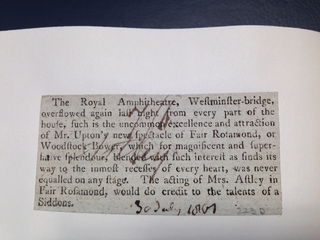 The Royal Amphitheatre, Westminster-bridge,
overflowed again last night from every part of the
house, such is the uncommon excellence and attraction
of Mr. Upton's new spectacle of Fair Rosamond, or
Woodstock Bower, which for magnificent and super-
lative splendour, blended with such interest as finds its
way to the inmost recesses of every heart, was never
equalled on any stage. The acting of Mrs. Astley in
Fair Rosamond, would do credit to the talents of a
Siddons.